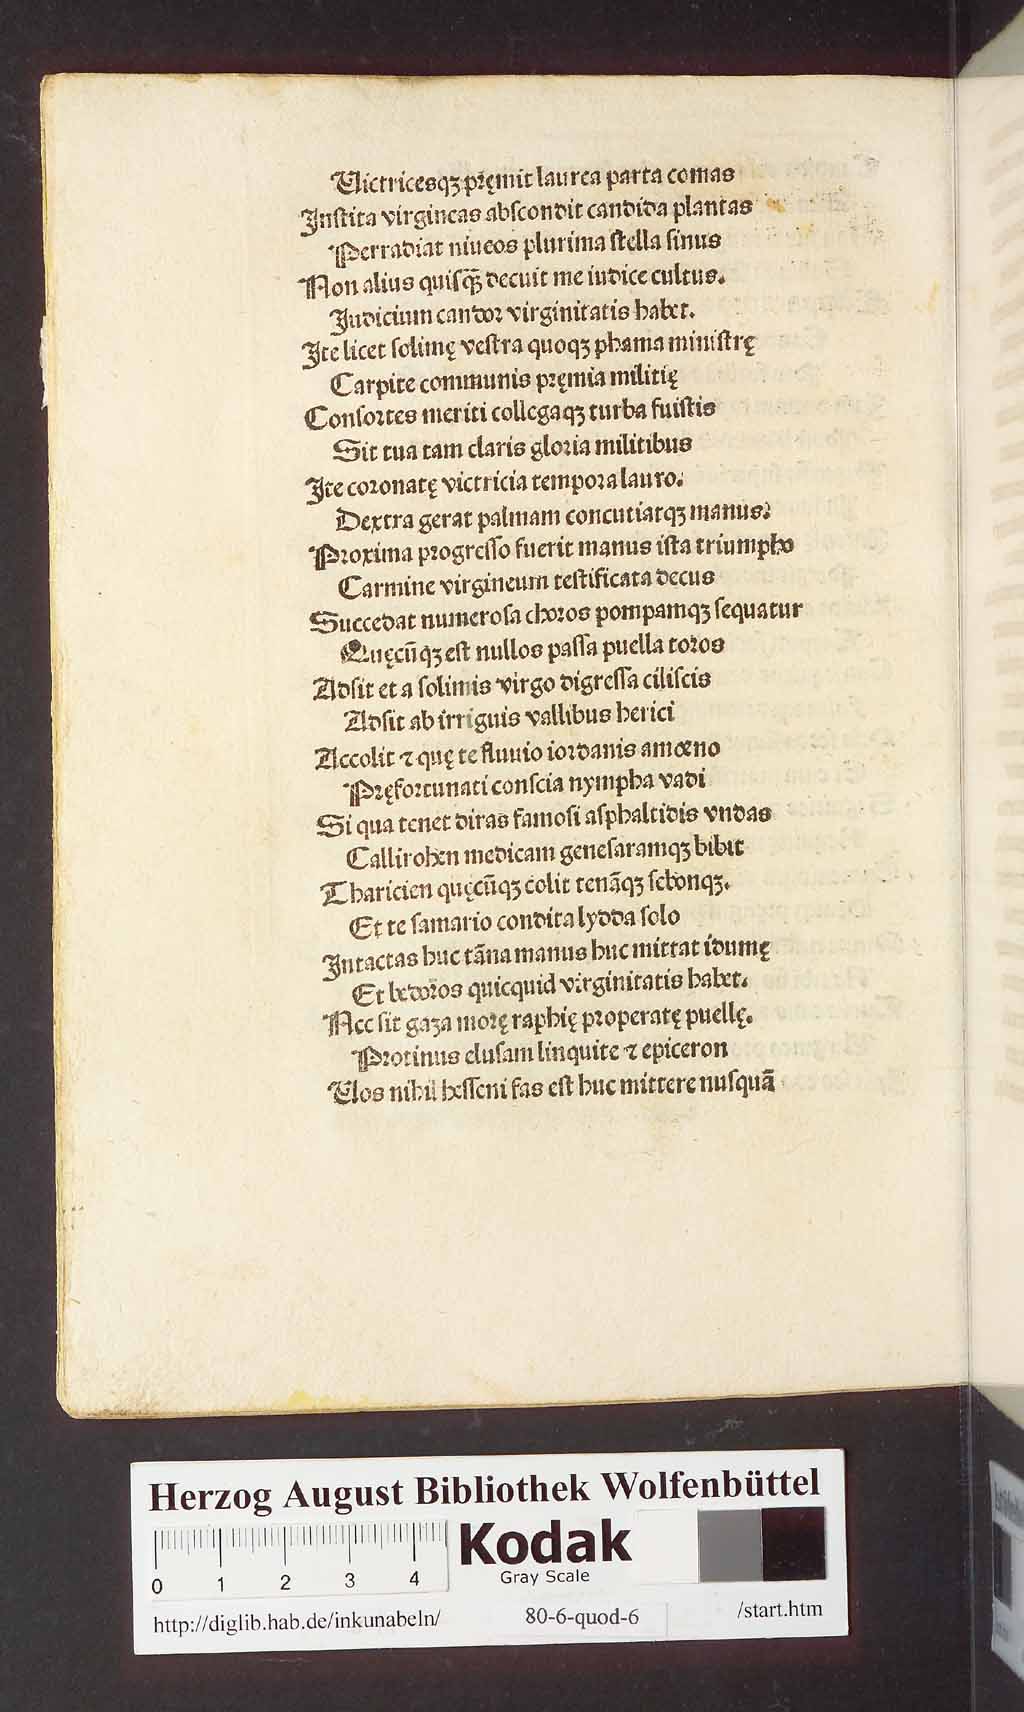 Victricesqꝫ pręmit laurea parta comas
Jnſtita virgineas abſcondit candida plantas
Perradiat niueos plurima ſtella ſinus
Non alius quiſꝙ̃ decuit me iudice cultus.
Judicium candor virginitatis habet.
Jte licet ſolimę veſtra quoqꝫ phama miniſtrę
Carpite communis pręmia militię
Conſortes meriti collegaqꝫ turba fuiſtis
Sit tua tam claris gloria militibus
Jte coronatę victricia tempora lauro:
Dextra gerat palmam concutiatqꝫ manus:
Proxima progreſſo fuerit manus iſta triumpho
Carmine virgineum teſtificata decus
Succedat numeroſa choros pompamqꝫ ſequatur
Quęcũqꝫ eſt nullos paſſa puella toros
Adſit et a ſolimis virgo digreſſa ciliſcis
Adſit ab irriguis vallibus herici
Accolit ⁊ quę te fluuio iordanis amœno
Pręfortunati conſcia nympha vadi
Si qua tenet diras famoſi aſphaltidis vndas
Callirohen medicam geneſaramqꝫ bibit
Tharicien quęcũqꝫ colit tenãqꝫ ſebonqꝫ.
Et te ſamario condita lydda ſolo
Jntactas huc tãna manus huc mittat idumę
Et bedoros quicquid virginitatis habet.
Nec ſit gaza morę raphię properatę puellę.
Protinus eluſam linquite ⁊ epiceron
Vos nihil heſſeni fas eſt huc mittere nuſquã
Herzog August Bibliothek Wolfenbüttel
Kodak
Gray Scale
0 1 2 3 4
http://diglib.hab.de/inkunabeln/ 80-6-quod-6 /start.htm